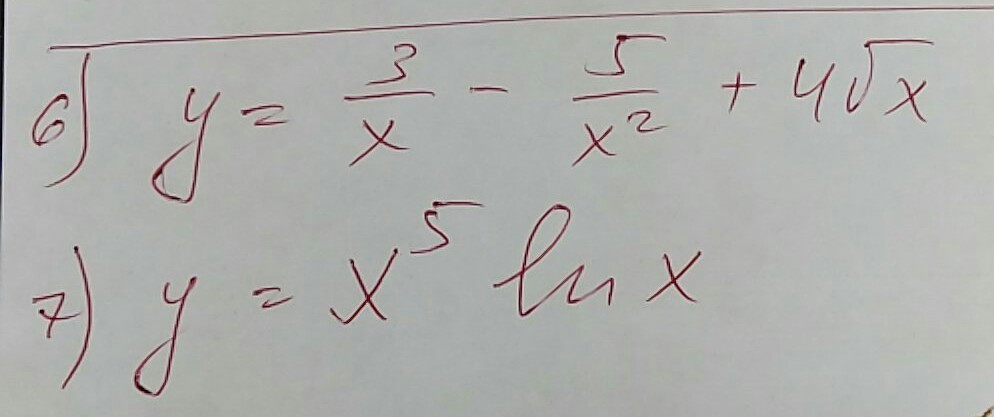 6) y = 3/x - 5/x² + 4√x
7) y = x⁵ ln x